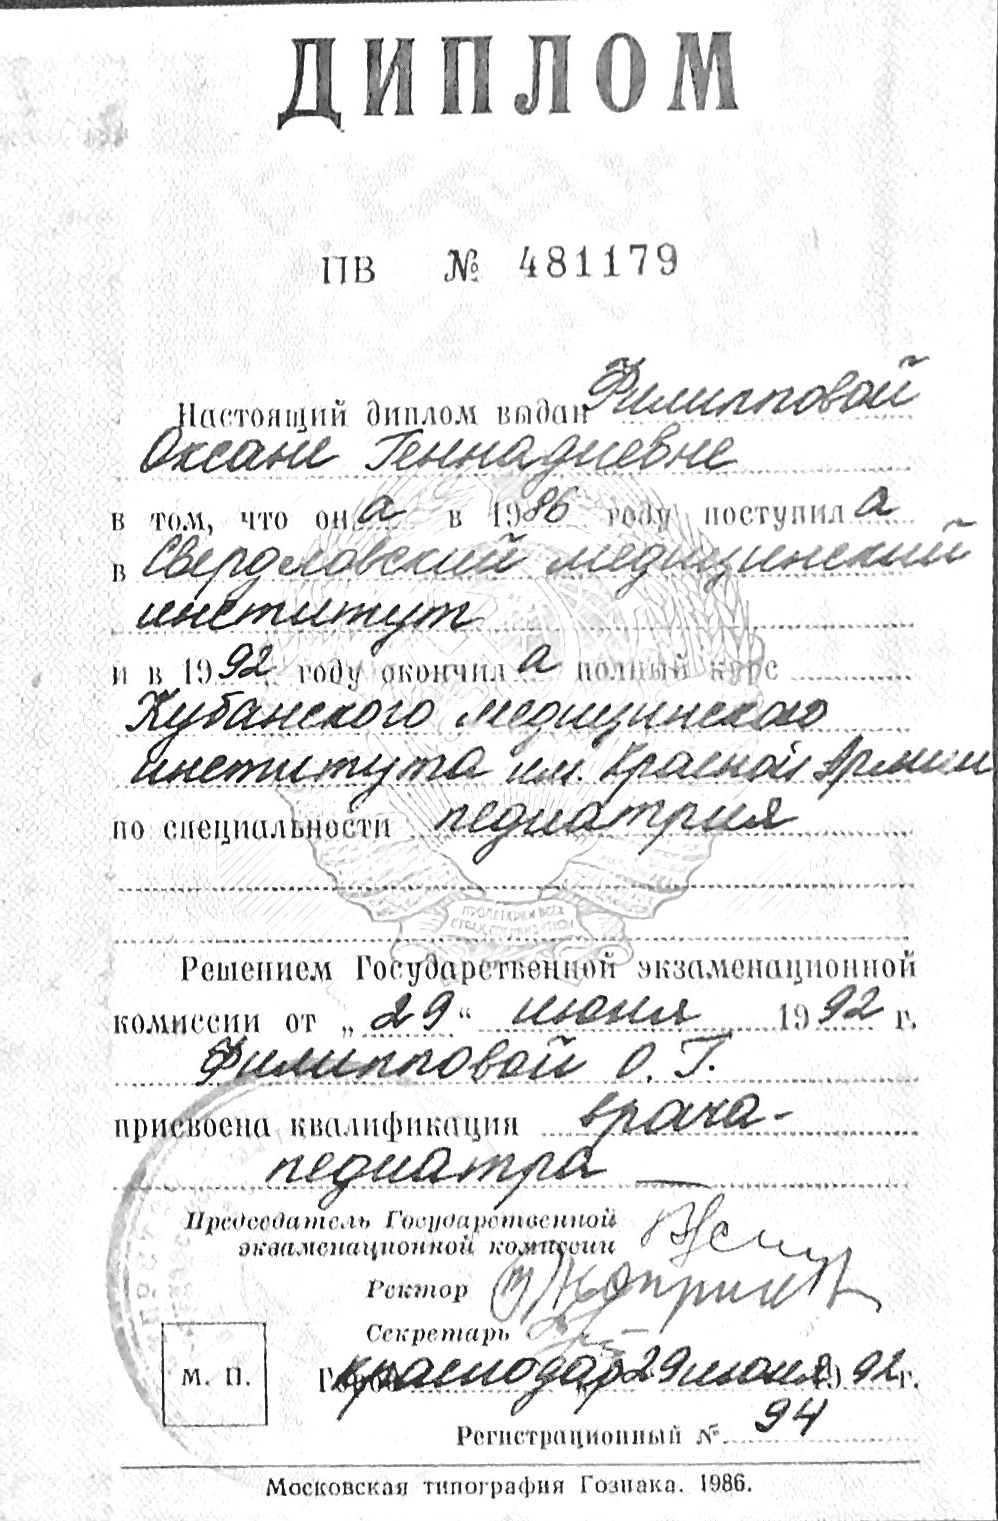 ДИПЛОМ
ПВ № 481179
Настоящий диплом выдан Филипповой
Оксане Геннадиевне
в том, что она в 1986 году поступила
в Свердловский медицинский
институт
и в 1992 году окончила полный курс
Кубанского медицинского
института им. Красной Армии
по специальности педиатрия
ПРОЛЕТАРИИ ВСЕХ
СТРАН, СОЕДИНЯЙТЕСЬ!
Решением Государственной экзаменационной
комиссии от „29“ июня 1992 г.
Филипповой О. Г.
присвоена квалификация врача-
педиатра
Председатель Государственной
экзаменационной комиссии
Ректор
Секретарь
М. П.
Город Краснодар 29 июня 1992 г.
Регистрационный № 94
Московская типография Гознака. 1986.